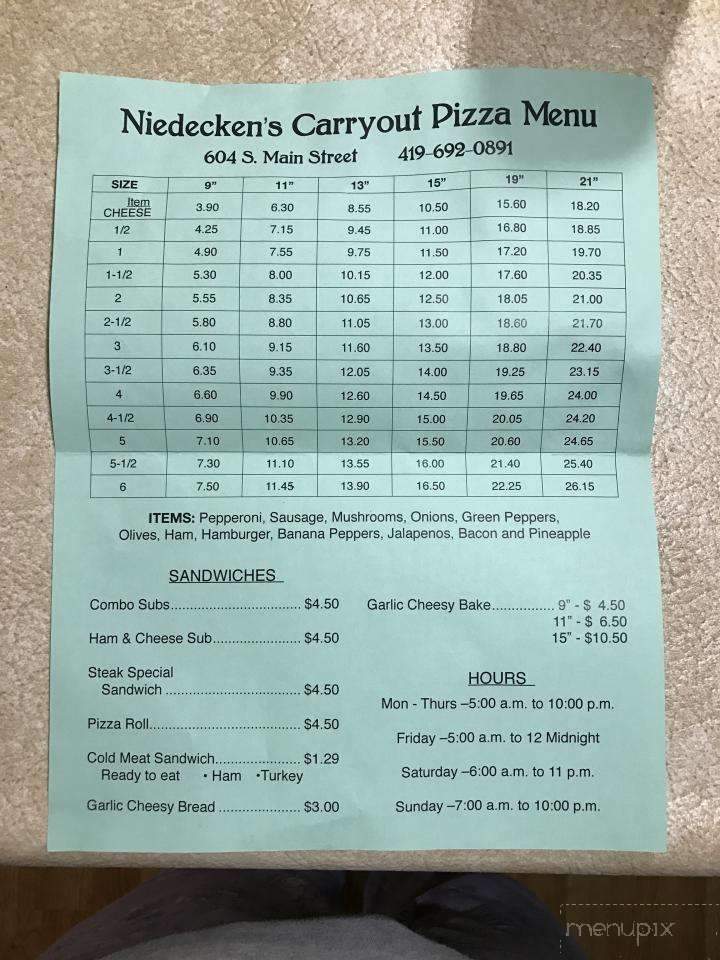 Niedecken's Carryout Pizza Menu
604 S. Main Street 419-692-0891
SIZE 9" 11" 13" 15" 19" 21"
Item
CHEESE 3.90 6.30 8.55 10.50 15.60 18.20
1/2 4.25 7.15 9.45 11.00 16.80 18.85
1 4.90 7.55 9.75 11.50 17.20 19.70
1-1/2 5.30 8.00 10.15 12.00 17.60 20.35
2 5.55 8.35 10.65 12.50 18.05 21.00
2-1/2 5.80 8.80 11.05 13.00 18.60 21.70
3 6.10 9.15 11.60 13.50 18.80 22.40
3-1/2 6.35 9.35 12.05 14.00 19.25 23.15
4 6.60 9.90 12.60 14.50 19.65 24.00
4-1/2 6.90 10.35 12.90 15.00 20.05 24.20
5 7.10 10.65 13.20 15.50 20.60 24.65
5-1/2 7.30 11.10 13.55 16.00 21.40 25.40
6 7.50 11.45 13.90 16.50 22.25 26.15
ITEMS: Pepperoni, Sausage, Mushrooms, Onions, Green Peppers,
Olives, Ham, Hamburger, Banana Peppers, Jalapenos, Bacon and Pineapple
SANDWICHES
Combo Subs............................... $4.50
Ham & Cheese Sub..................... $4.50
Steak Special
Sandwich ................................ $4.50
Pizza Roll.................................... $4.50
Cold Meat Sandwich.................... $1.29
Ready to eat • Ham •Turkey
Garlic Cheesy Bread ................... $3.00
Garlic Cheesy Bake............... 9" - $ 4.50
11" - $ 6.50
15" - $10.50
HOURS
Mon - Thurs –5:00 a.m. to 10:00 p.m.
Friday –5:00 a.m. to 12 Midnight
Saturday –6:00 a.m. to 11 p.m.
Sunday –7:00 a.m. to 10:00 p.m.
menupix